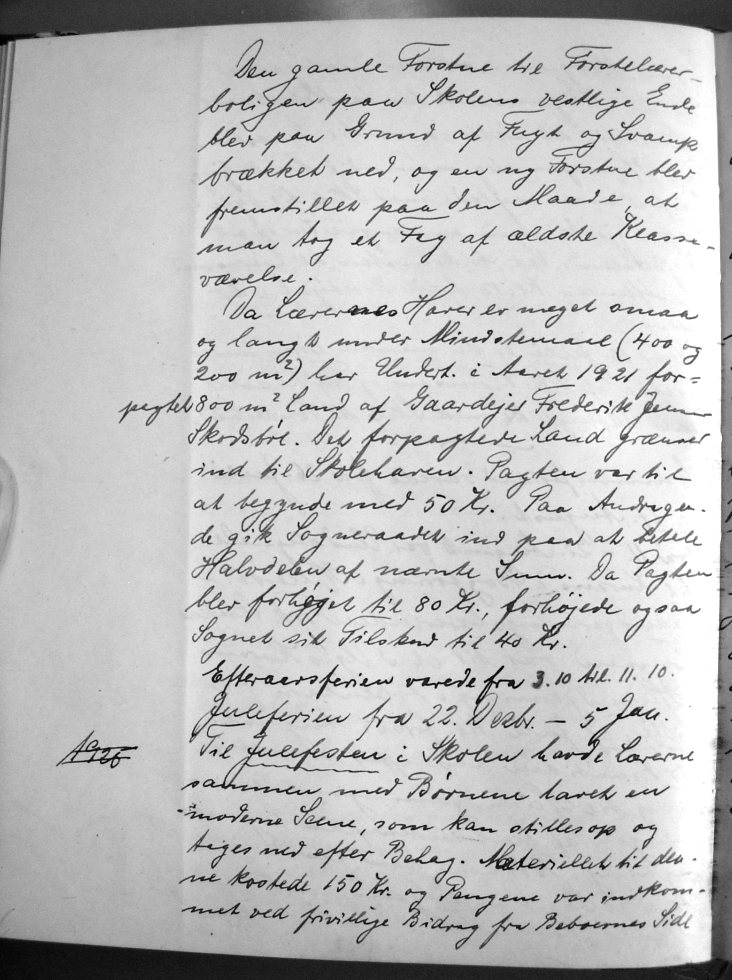 Den gamle Forstue til Førstelærer-
boligen paa Skolens vestlige Ende
blev paa Grund af Fugt og Svamp
brækket ned, og en ny Forstue blev
fremstillet paa den Maade, at
man tog et Fag af ældste Klasse-
værelse.
Da Lærernes Haver er meget smaa
og langt under Mindstemaal (400 og
200 m²) har Undert. i Aaret 1921 for=
pagtet 800 m² Land af Gaardejer Frederik Jensen
Skodsbøl. Det forpagtede Land grænser
ind til Skolehaven. Pagten var til
at begynde med 50 Kr. Paa Andragen-
de gik Sogneraadet ind paa at betale
Halvdelen af nævnte Sum. Da Pagten
blev forhøjet til 80 Kr., forhøjede ogsaa
Sognet sit Tilskud til 40 Kr.
Efteraarsferien varede fra 3.10 til 11.10.
Juleferien fra 22. Dezbr. – 5 Jan.
1926
Til Julefesten i Skolen havde Lærerne
sammen med Børnene lavet en
moderne Scene, som kan stilles op og
tages ned efter Behag. Materiellet til den-
ne kostede 150 Kr. og Pengene var indkom-
met ved frivillige Bidrag fra Beboernes Side